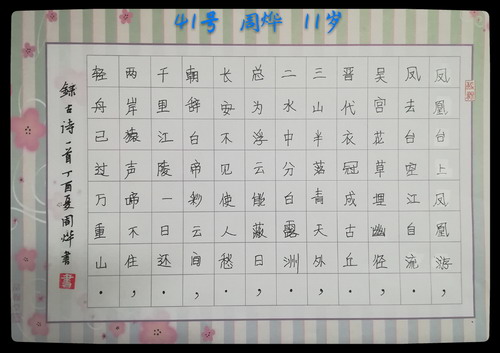 41号 周烨 11岁
凤凰台上凤凰游，
凤去台空江自流.
吴宫花草埋幽径，
晋代衣冠成古丘.
三山半落青天外，
二水中分白露洲.
总为浮云能蔽日，
长安不见使人愁.
朝辞白帝彩云间，
千里江陵一日还.
两岸猿声啼不住，
轻舟已过万重山.
录古诗一首丁酉夏周烨书